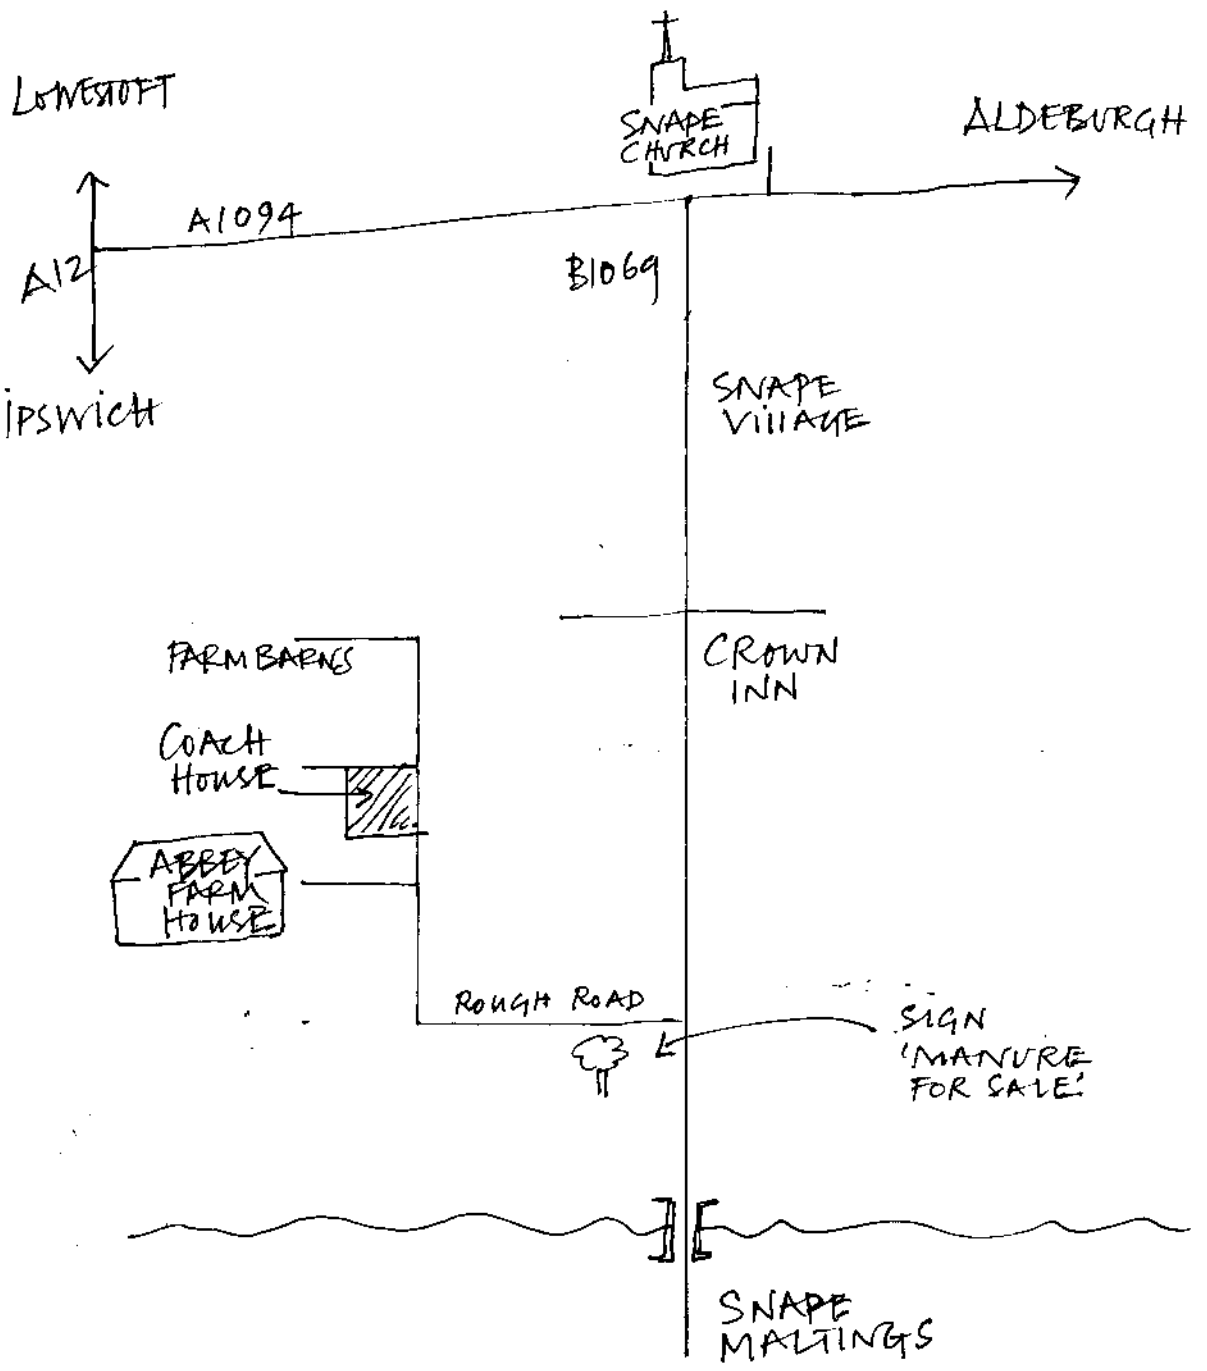 LOWESTOFT
SNAPE
CHURCH
ALDEBURGH
A1094
A12
B1069
IPSWICH
SNAPE
VILLAGE
FARM BARNS
CROWN
INN
COACH
HOUSE
ABBEY
FARM
HOUSE
ROUGH ROAD
SIGN
'MANURE
FOR SALE'
SNAPE
MALTINGS